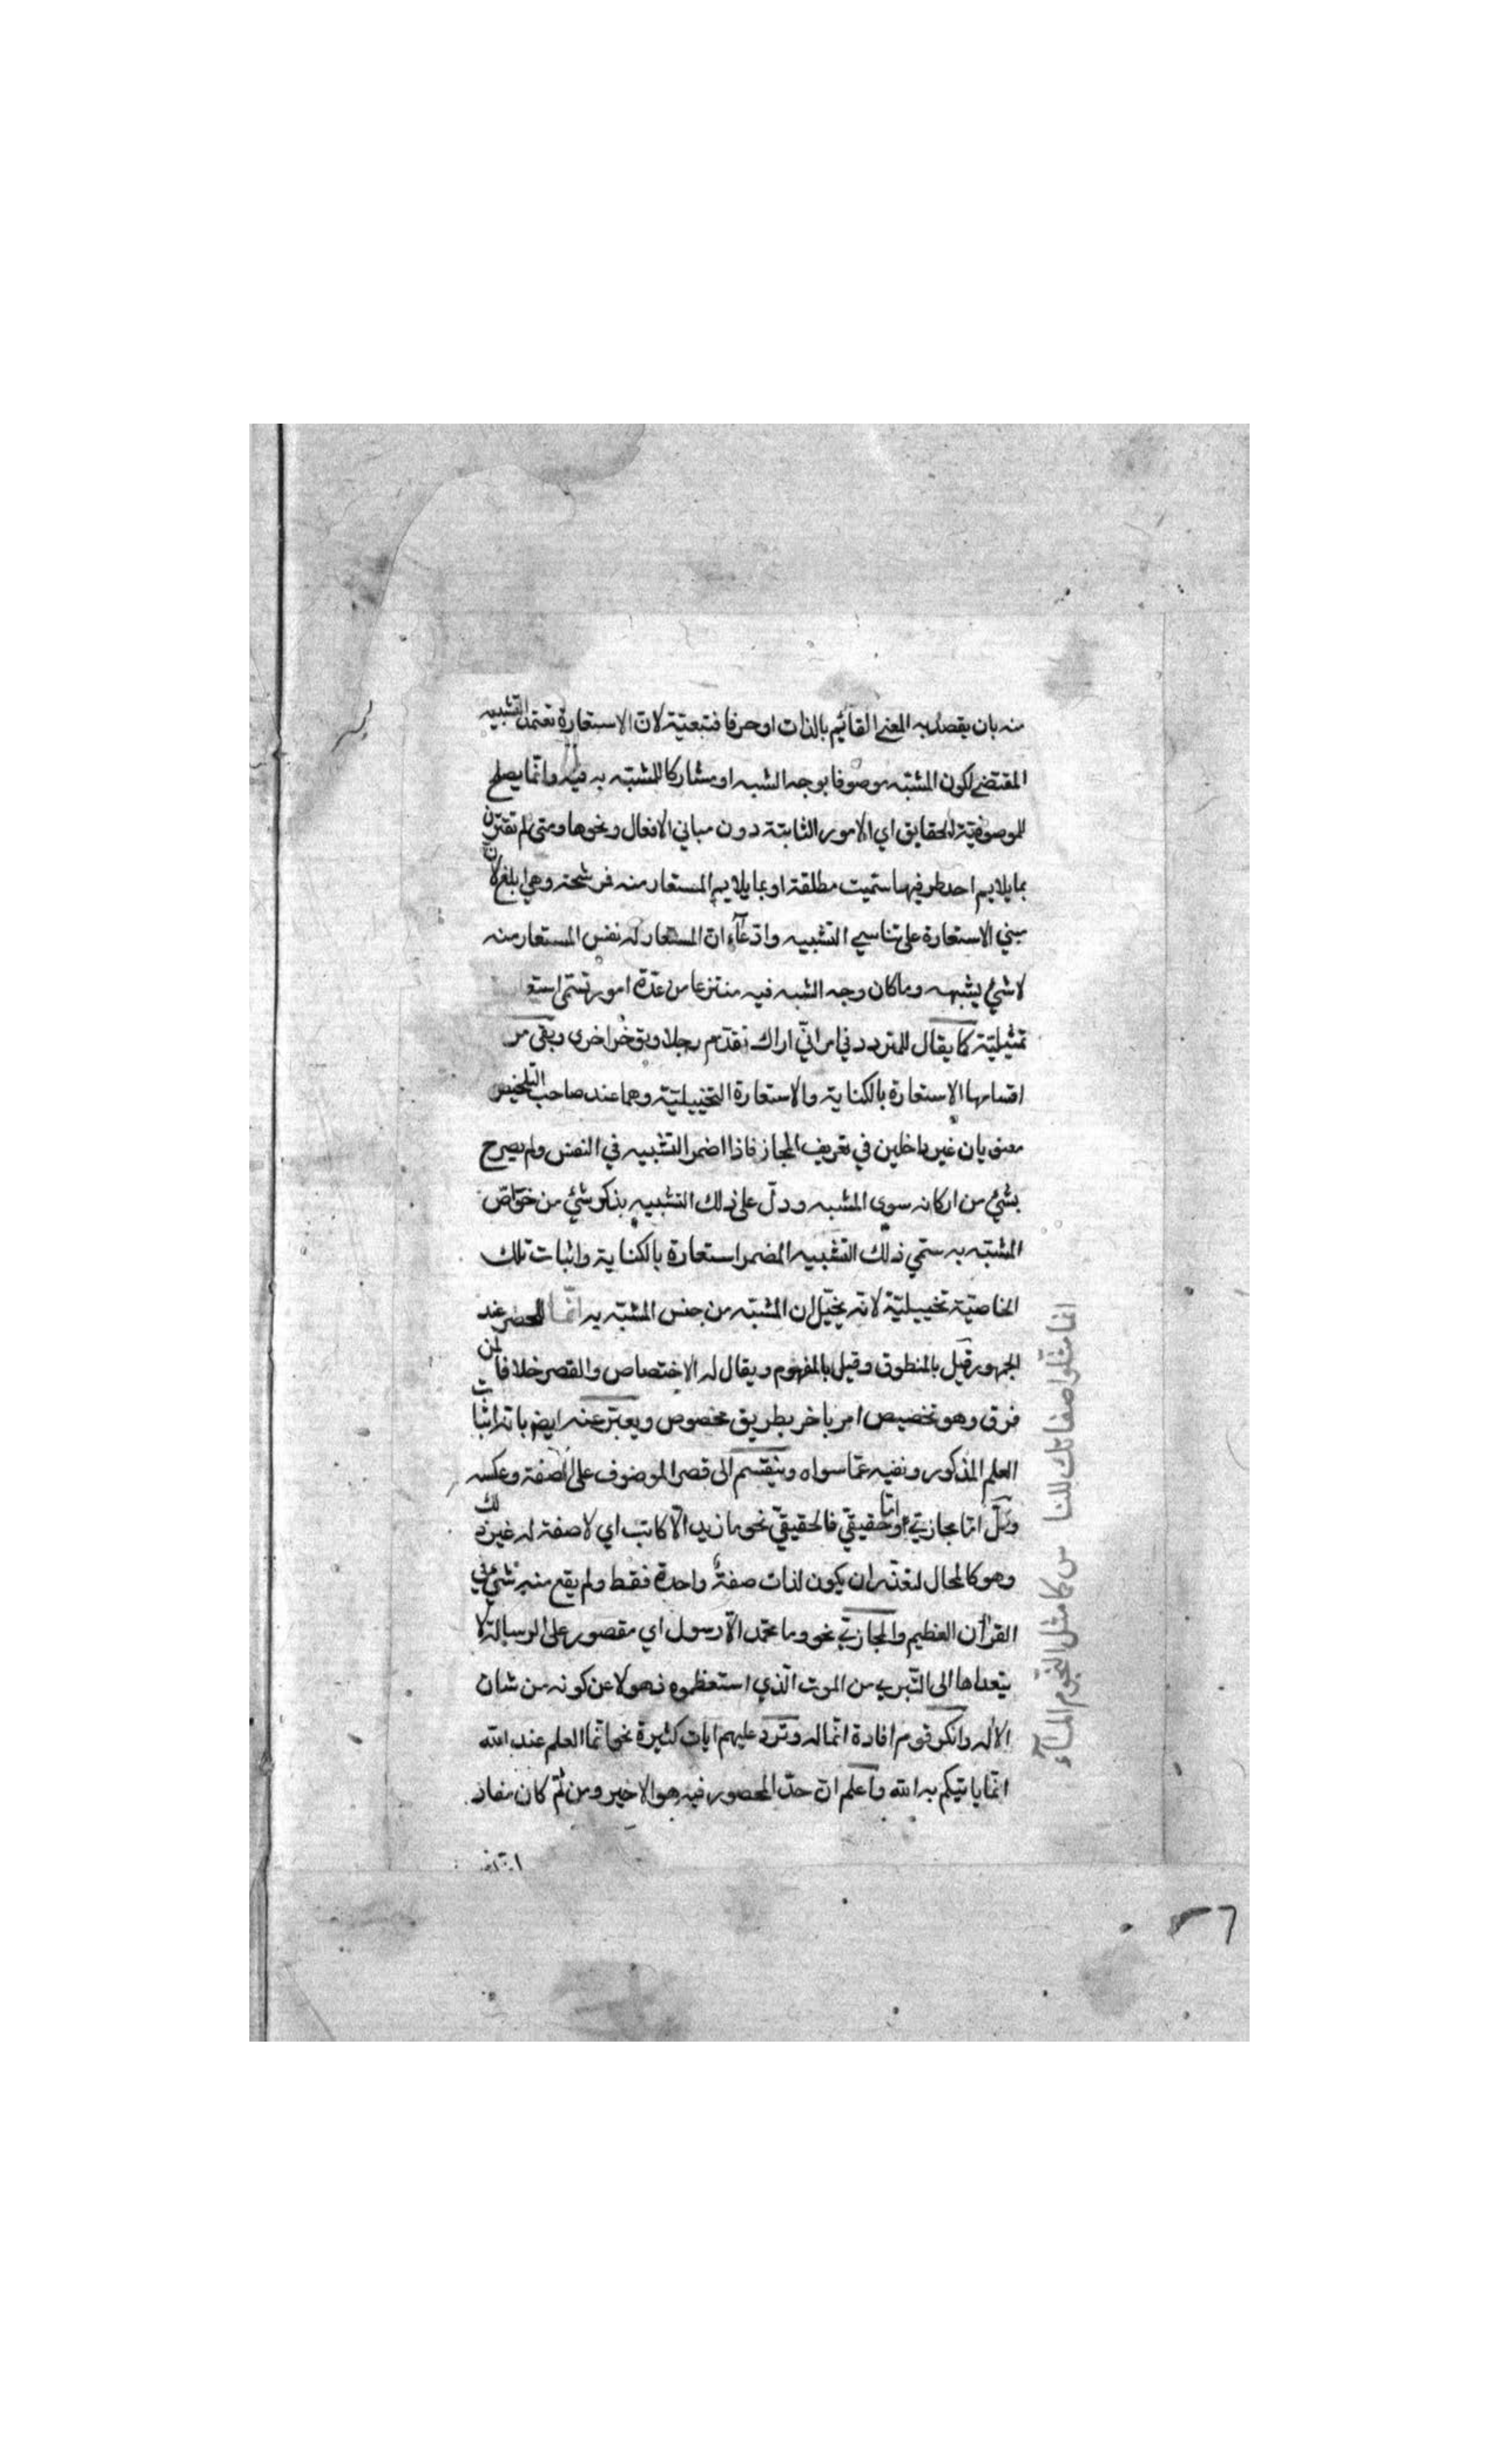 منه بان يقصد به المعنى القائم بالذات او حرفا فتبعيّة لانّ الاستعارة تعتمد التشبيه
المقتضي لكون المشبّه موصوفا بوجه الشبه او مشاركا للمشبّه به فيه وانّما يصلح
للموصوفيّة الحقايق اي الامور الثابتة دون مباني الافعال ونحوها ومتى لم تقترن
بما يلايم احد طرفيها سمّيت مطلقة او بما يلايم المستعار منه فمرشحة وهي ابلغ لانّ
مبني الاستعارة على تناسي التشبيه وادّعآء انّ المستعار له نفس المستعار منه
لا شيء يشبهه وما كان وجه الشبه فيه منتزعا من عدّة امور تسمّى استعا
تمثيليّة كما يقال للمتردد في امر انّي اراك تقدّم رجلا وتؤخّر اخرى وبقى من
اقسامها الاستعارة بالكناية والاستعارة التخييليّة وهما عند صاحب التلخيص
معنويان غير داخلين في تعريف المجاز فاذا اضمر التشبيه في النفس ولم يصرح
بشيء من اركانه سوى المشبه ودلّ على ذلك التشبيه بذكر شيء من خواصّ
المشبّه به سمّي ذلك التشبيه المضمر استعارة بالكناية واثبات تلك
الخاصيّة تخييليّة لانّه يخيّل ان المشبّه من جنس المشبّه به انّما للحصر عند
الجمهور قيل بالمنطوق وقيل بالمفهوم ويقال له الاختصاص والقصر خلافا لمن
فرق وهو تخصيص امر باخر بطريق مخصوص ويعبّر عنه ايضا بانه اثبات
العلم المذكور ونفيه عمّا سواه وينقسم الى قصر الموصوف على الصفة وعكسه
وكلّ امّا مجازيّ اوامّا حقيقيّ فالحقيقيّ نحو ما زيد الّا كاتب اي لا صفة له غير ذلك
وهو كالمحال لتعذّر ان يكون لذات صفةٌ واحدة فقط ولم يقع منه شيء في
القرآن العظيم والمجازيّ نحو وما محمّد الّا رسول اي مقصور على الرسالة لا
يتعداها الى التبري من الموت الّذي استعظموه ذهولا عن كونه من شان
الاله وانكر قوم افادة انّما له وترد عليهم ايات كثيرة نحو انّما العلم عند الله
انّما ياتيكم به الله واعلم انّ حدّ المحصور فيه هو الاخير ومن ثمّ كان مفاد
انما مثّلوا صفاتك للناس كما مثل النجوم المآء
٢٦